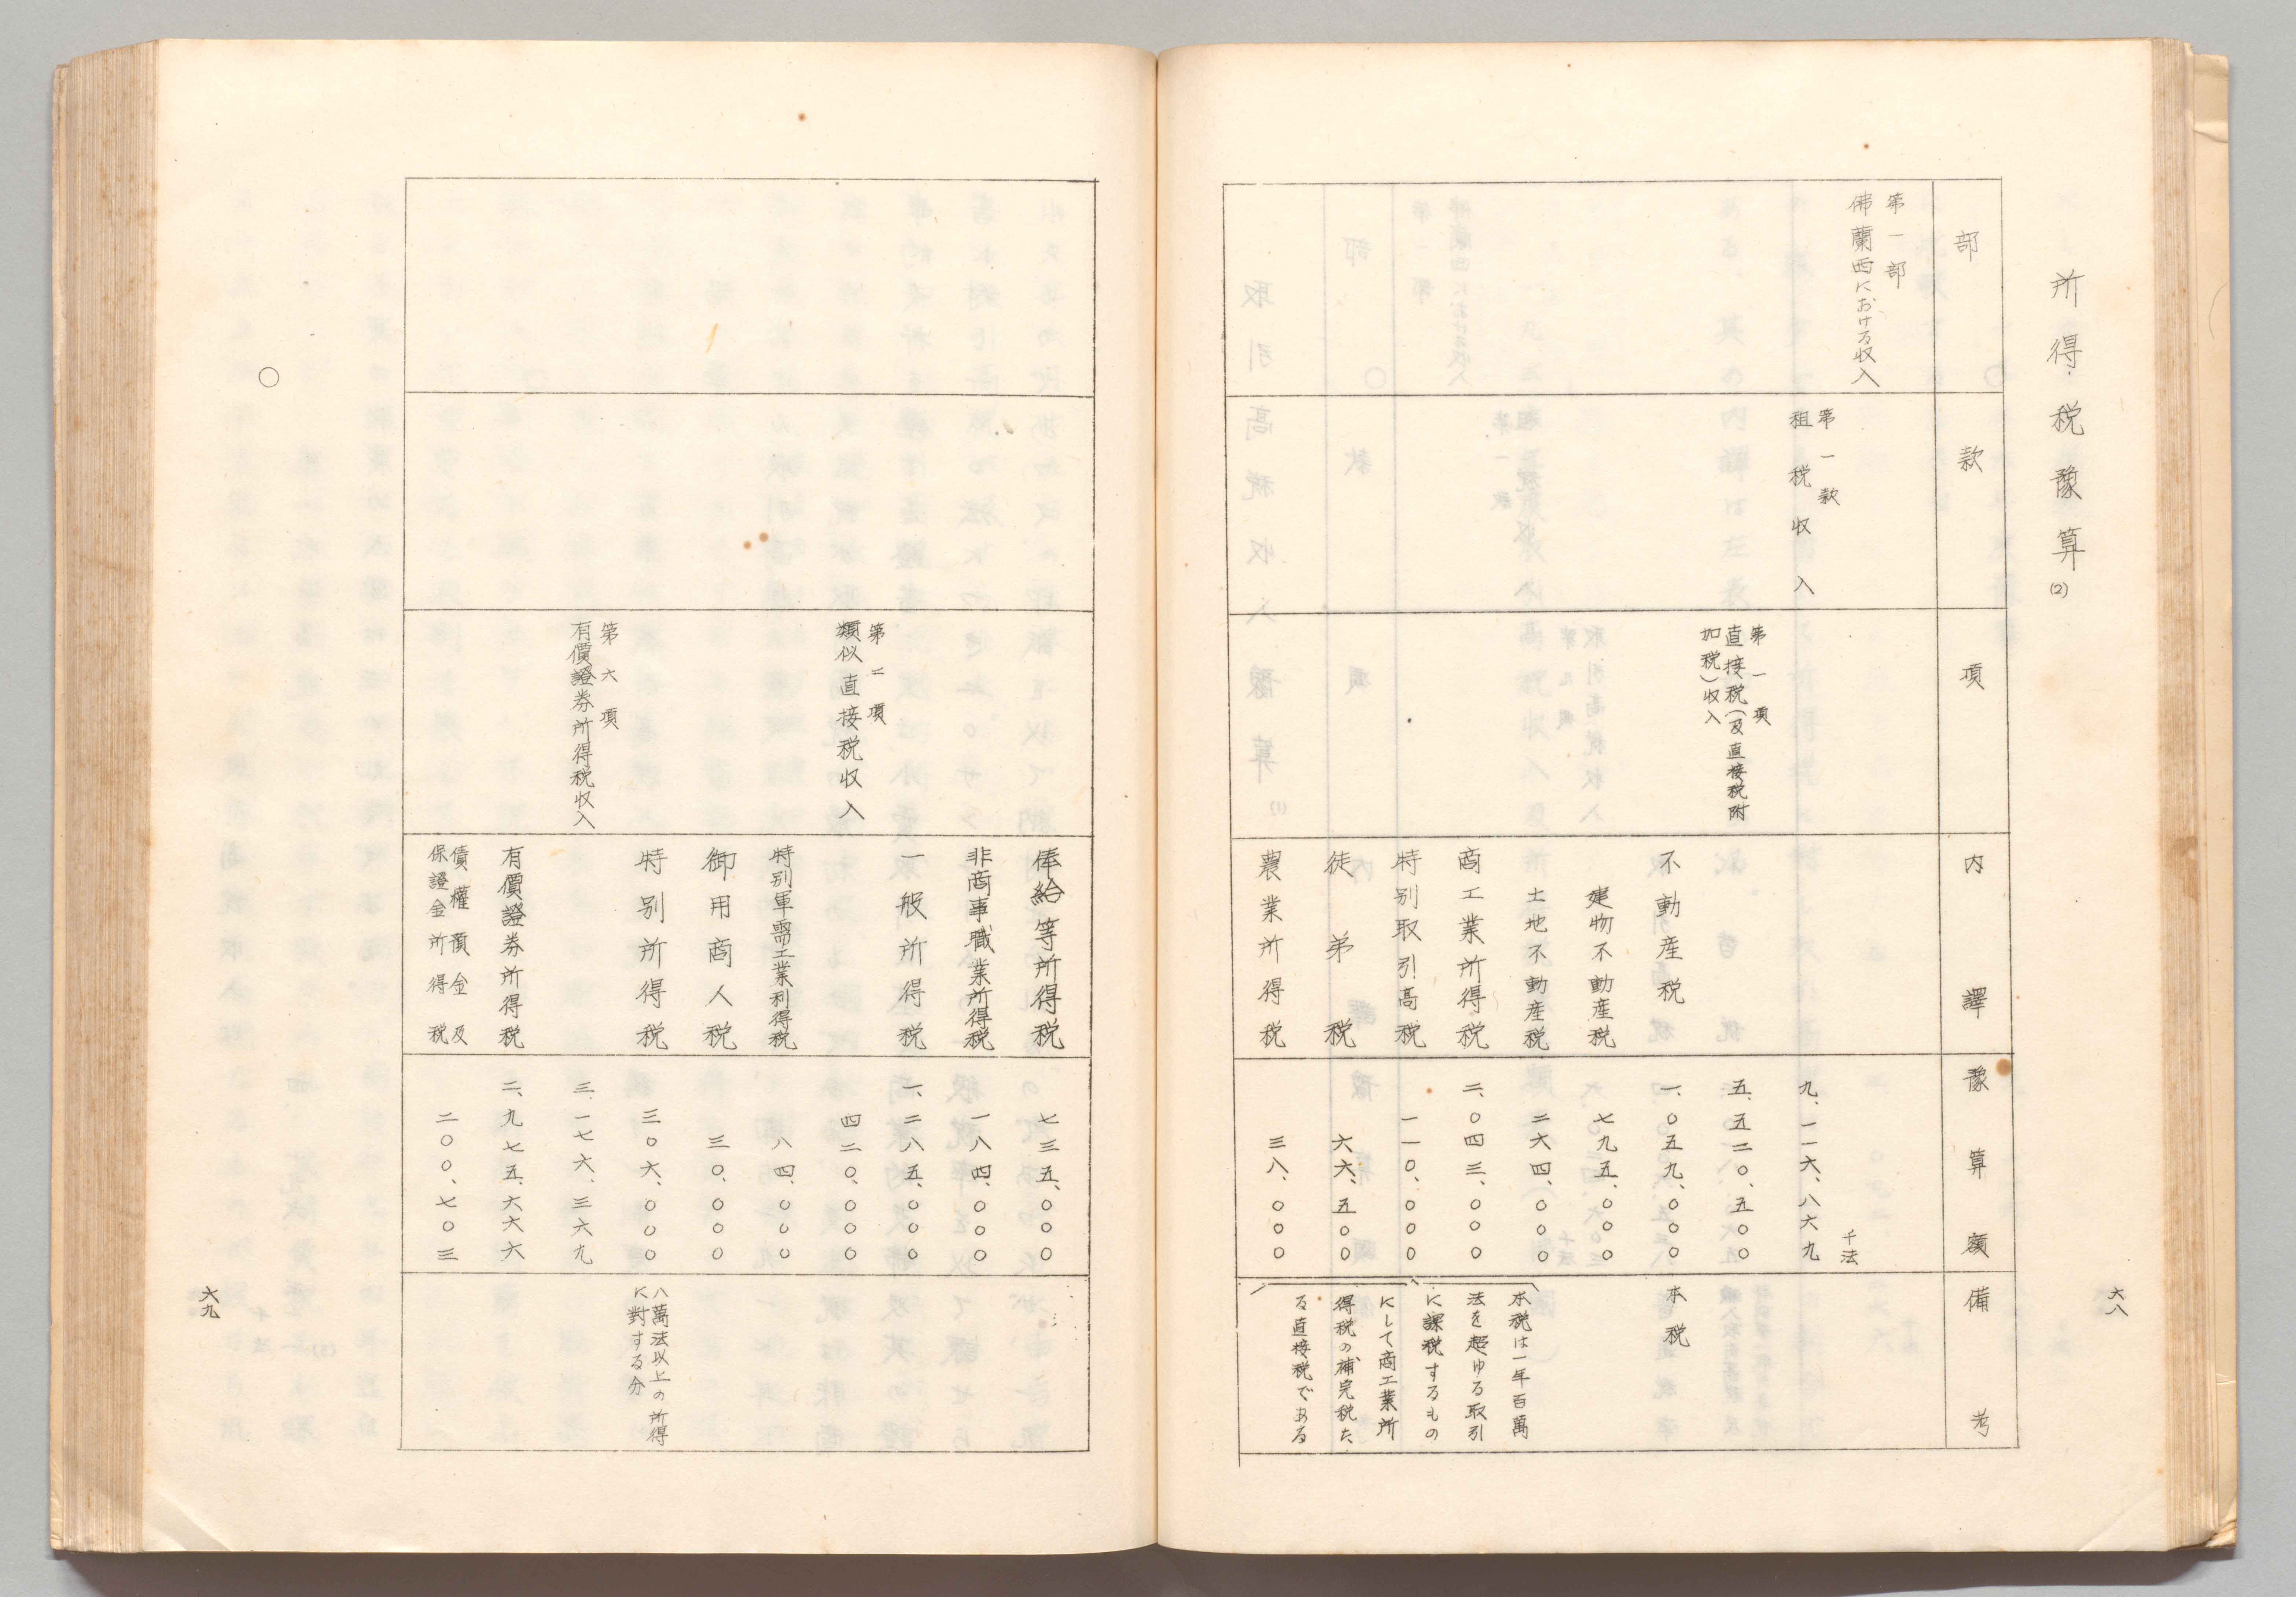 所得税豫算(2)
部
款
項
内譯
豫算額
備考
第一部
佛蘭西における収入
第一款
租税収入
第一項
直接税(及直接税附
加税)収入
千法
九、一一六、八六九
五、五二〇、五〇〇
不動産税
一、〇五九、〇〇〇
本税
建物不動産税
七九五、〇〇〇
土地不動産税
二六四、〇〇〇
商工業所得税
二、〇四三、〇〇〇
特別取引高税
一一〇、〇〇〇
徒弟税
六六、五〇〇
農業所得税
三八、〇〇〇
本税は一年百萬
法を超ゆる取引
に課税するもの
にして商工業所
得税の補完税た
る直接税である
六八
俸給等所得税
七三五、〇〇〇
非商事職業所得税
一八四、〇〇〇
一般所得税
一、二八五、〇〇〇
第二項
類似直接税収入
四二〇、〇〇〇
特別軍需工業利得税
八四、〇〇〇
御用商人税
三〇、〇〇〇
特別所得税
三〇六、〇〇〇
八萬法以上の所得
に對する分
第六項
有價證券所得税収入
三、一七六、三六九
有價證券所得税
二、九七五、六六六
債權預金及
保證金所得税
二〇〇、七〇三
○
六九